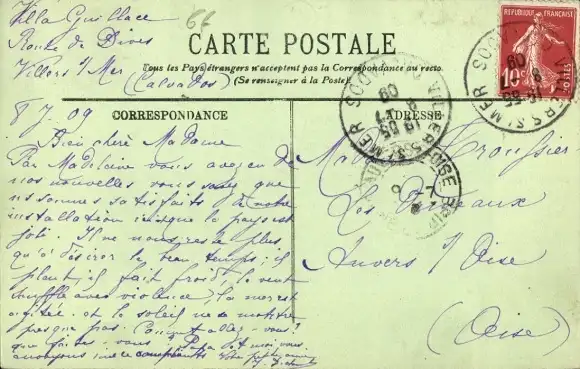 Villa Guillace
Route de Dives
Villers s/ Mer (Calvados)
66
CARTE POSTALE
Tous les Pays étrangers n'acceptent pas la Correspondance au recto.
(Se renseigner à la Poste)
REPUBLIQUE FRANÇAISE
10c
POSTES
VILLERS S. MER
CORRESPONDANCE
ADRESSE
8 7. 09
Bien chère Madame
Par Madeleine vous avez eu de
nos nouvelles vous savez que
nous sommes satisfaits de notre
installation et que le pays est
joli. Il ne nous reste plus
qu'à désirer le beau temps; il
pleut, il fait froid, le vent
souffle avec violence, la mer est
agitée et le soleil ne se montre
presque pas. Comment allez-vous?
que faites-vous? Papa et moi vous
envoyons
Madame Troussier
Les
Anvers s/ Oise
(Oise)